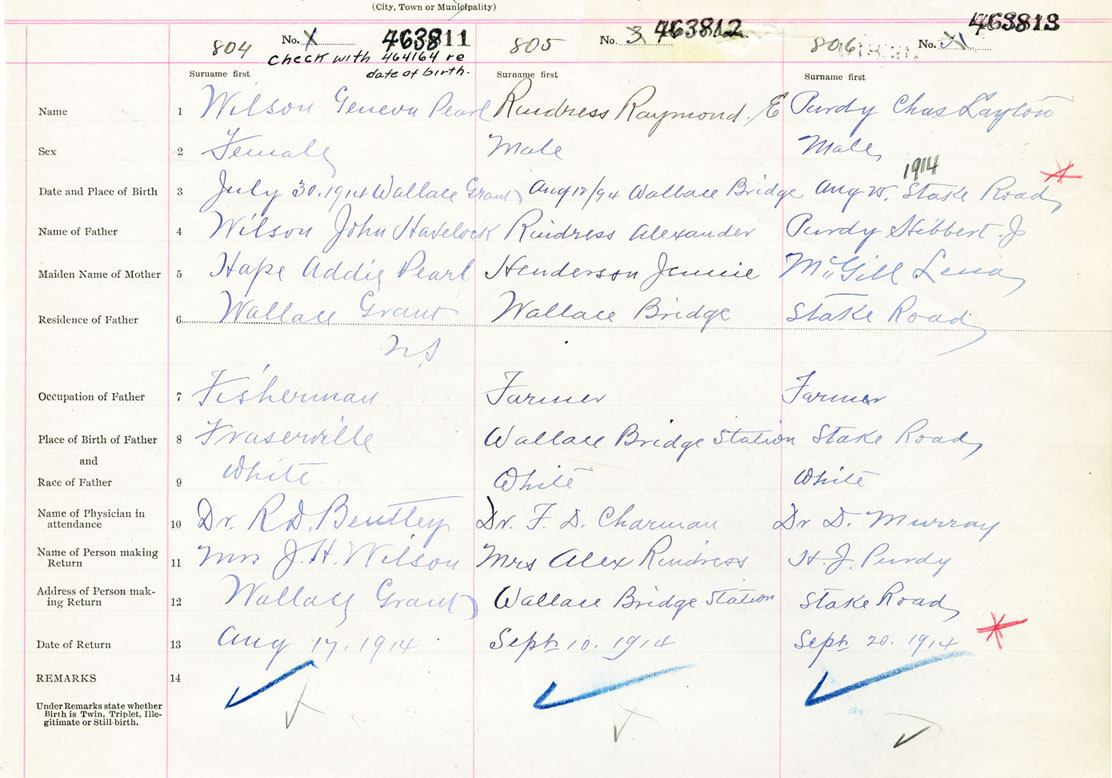 (City, Town or Municipality)
804 No. 1 463811 805 No. 3 463812 806 No. 463813
Check with 464164 re
date of birth.
Surname first Surname first Surname first
Name 1 Wilson Geneva Pearl Rindress Raymond. E Purdy Chas Layton
Sex 2 Female Male Male
1914
Date and Place of Birth 3 July 30. 1914 Wallace Grant Aug 12/94 Wallace Bridge Aug 25, Stake Road
Name of Father 4 Wilson John Havelock Rindress Alexander Purdy Hibbert. J
Maiden Name of Mother 5 Addie Pearl Henderson Jennie McGill Lena
Residence of Father 6 Wallace Grant Wallace Bridge Stake Road
N.S
Occupation of Father 7 Fisherman Farmer Farmer
Place of Birth of Father 8 Fraserville Wallace Bridge Station Stake Road
and
Race of Father 9 White White White
Name of Physician in
attendance 10 Dr. R.D. Bentley Dr. F. D. Charman Dr D. Murray
Name of Person making
Return 11 Mrs J. H. Wilson Mrs Alex Rindress H. J. Purdy
Address of Person mak-
ing Return 12 Wallace Grant Wallace Bridge Station Stake Road
Date of Return 13 Aug 17. 1914 Sept 10. 1914 Sept 20. 1914
REMARKS 14
Under Remarks state whether
Birth is Twin, Triplet, Ille-
gitimate or Still-birth.